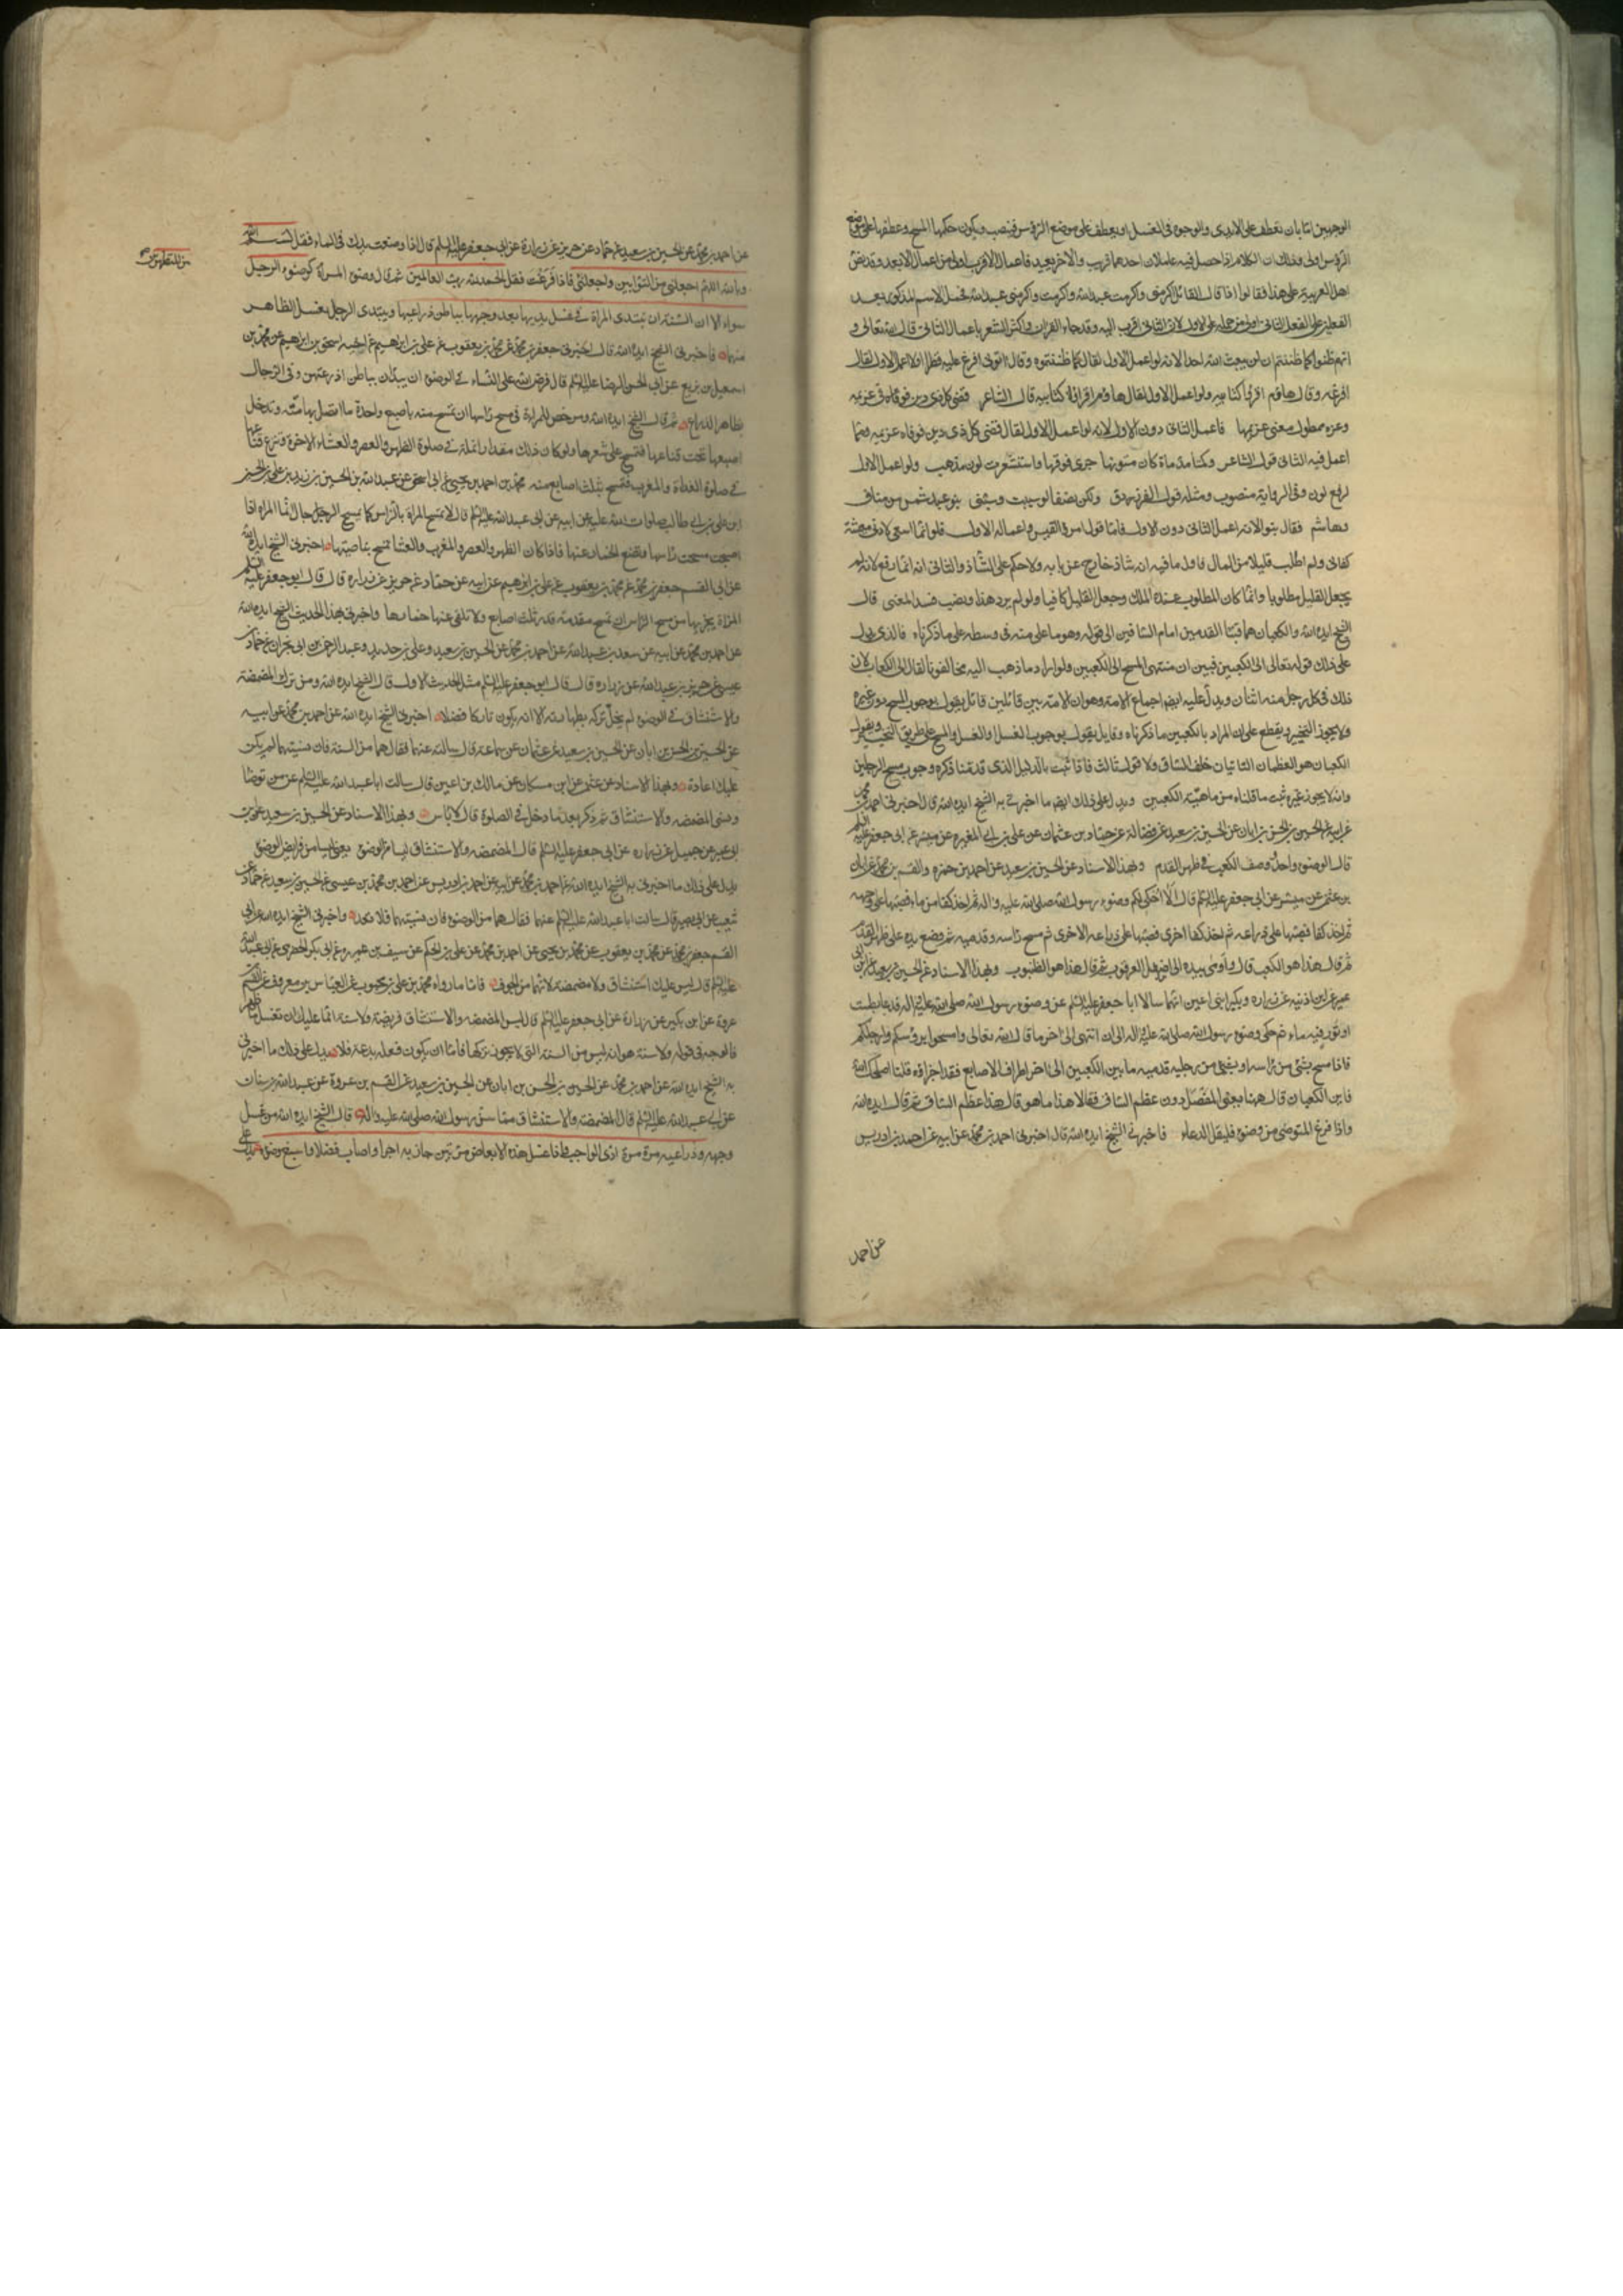 الوجهين اما بان تعطف على الايدى والوجوه فى الغسل او يعطف على موضع الرؤس فينصب ويكون حكمها المسح وعطفها على موضع
الرؤس اولى وذلك ان الكلام اذا حصل فيه عاملان احدهما قريب والاخر بعيد فاعمال الاقرب اولى من اعمال الابعد وقد نص
اهل العربية على هذا فقالوا اذا قال القائل اكرمنى واكرمت عبد الله واكرمت واكرمنى عبد الله فحمل الاسم المذكور بعد
الفعلين على الفعل الثانى اولى من حمله على الاول لان الثانى اقرب اليه وقد جاء القران واكثر الشعر باعمال الثانى قال الله تعالى و
انهم ظنوا كما ظننتم ان لن يبعث الله احدا لانه لو اعمل الاول لقال كما ظننتموه وقال اتونى افرغ عليه قطرا ولو اعمل الاول لقال
افرغه وقال هاؤم اقرؤا كتابيه ولو اعمل الاول لقال هاؤم اقرؤه كتابيه قال الشاعر قضى كل ذى دين فوفى غريمه
وعزة ممطول معنى غريمها فاعمل الثانى دون الاول لانه لو اعمل الاول لقال قضى كل ذى دين فوفاه غريمه ومما
اعمل فيه الثانى قول الشاعر وكمتا مدماة كان متونها جرى فوقها واستشعرت لون مذهب ولو اعمل الاول
لرفع لون وفى الرواية منصوب ومثله قول الفرزدق ولكن نصفا لو سببت وسبنى بنو عبد شمس من مناف
وهاشم فقال بنو لانه اعمل الثانى دون الاول فاما قول امرئ القيس واعماله الاول فلو انما اسعى لادنى معيشة
كفانى ولم اطلب قليل من المال فاول ما فيه انه شاذ خارج عن بابه ولا حكم على الشاذ والثانى انه انما رفع لانه لم
يجعل القليل مطلوبا وانما كان المطلوب عنده الملك وجعل القليل كافيا ولو لم يرد هذا ونصب فسد المعنى قال
الشيخ ايده الله والكعبان هما قبتا القدمين امام الساقين الى قوله وهو ما على منه فى وسطه على ما ذكرناه فالذى يدل
على ذلك قوله تعالى الى الكعبين فبين ان منتهى المسح الى الكعبين ولو اراد ما ذهب اليه مخالفونا لقال الى الكعاب لان
ذلك فى كل رجل منه اثنان ويدل عليه ايضا اجماع الامة وهو ان الامة بين قائلين قائل يقول بوجوب المسح دون غيره
ولا يجوز التخيير ويقطع على ان المراد بالكعبين ما ذكرناه وقايل يقول بوجوب الغسل او الغسل والمسح على طريق التخيير ويقول
الكعبان هو العظمان الناتيان خلف الساق ولا قول ثالث فاذا ثبت بالدليل الذى قدمنا ذكره وجوب مسح الرجلين
وانه لا يجوز غيره ثبت ما قلناه من ماهية الكعبين ويدل على ذلك ايضا ما اخبرنى به الشيخ ايده الله قال اخبرنى احمد بن محمد
عن ابيه عن الحسين بن الحسن بن ابان عن الحسين بن سعيد عن فضالة عن حماد بن عثمان عن على بن ابى المغيرة عن ميسر عن ابى جعفر عليه السلم
قال الوضوء واحد ووصف الكعب فى ظهر القدم وبهذا الاسناد عن الحسين بن سعيد عن احمد بن حمزه والقسم بن محمد عن ابان
بن عثمن عن ميسر عن ابى جعفر عليه السلم قال الا احكى لكم وضوء رسول الله صلى الله عليه واله ثم اخذ كفا من ماء فصبها على وجهه
ثم اخذ كفا فصبها على ذراعه ثم اخذ كفا اخرى فصبها على ذراعه الاخرى ثم مسح راسه وقدميه ثم وضع يده على ظهر القدم
ثم قال هذا هو الكعب قال واومى بيده الى اسفل العرقوب ثم قال هذا هو الظنبوب وبهذا الاسناد عن الحسين بن سعيد عن ابن ابى
عمير عن ابن اذينه عن زراره وبكير ابنى اعين انهما سالا ابا جعفر عليه السلم عن وضوء رسول الله صلى الله عليه واله فدعا بطست
او تور فيه ماء ثم حكى وضوء رسول الله صلى الله عليه واله الى ان انتهى الى اخر ما قال الله تعالى وامسحوا برؤسكم وارجلكم
فاذا مسح بشئ من راسه او بشئ من رجليه قدميه ما بين الكعبين الى اخر اطراف الاصابع فقد اجزاه قلنا اصلحك الله
فاين الكعبان قال ههنا يعنى المفصل دون عظم الساق فقالا هذا ما هو قال هذا عظم الساق ثم قال ايده الله
واذا فرغ المتوضى من وضوئه فليقل الدعاء فاخبرنى الشيخ ايده الله قال اخبرنى احمد بن محمد عن ابيه عن احمد بن ادريس
عن احمد
عن احمد بن محمد عن الحسين بن سعيد عن حماد عن حريز عن زرارة عن ابى جعفر عليه السلم قال اذا وضعت يدك فى الماء فقل بسم الله
وبالله اللهم اجعلنى من التوابين واجعلنى فاذا فرغت فقل الحمد لله رب العالمين ثم قال وضوء المراة كوضوء الرجل
من المتطهرين
سواء الا ان السنة ان تبتدى المراة فى غسل يديها بعد وجهها بباطن ذراعيها ويبتدى الرجل بغسل الظاهر
منهما فاخبرنى الشيخ ايده الله قال اخبرنى جعفر بن محمد عن محمد بن يعقوب عن على بن ابرهيم عن اخيه اسحق بن ابرهيم عن محمد بن
اسمعيل بن بزيع عن ابى الحسن الرضا عليه السلم قال فرض الله على النساء فى الوضوء ان يبدان بباطن اذرعتهن وفى الرجال
بظاهر الذراع ثم قال الشيخ ايده الله ورخص للمراة فى مسح راسها ان تمسح منه باصبع واحدة ما اتصل بها منه وتدخل
اصبعها تحت قناعها فتمسح على شعرها ولو كان ذلك مقدار انملة فى صلوة الظهر والعصر والعشاء الاخرة وتنزع قناعها
فى صلوة الغداة والمغرب فتمسح بثلث اصابع منه محمد بن احمد بن يحيى عن ابى اسحق عن عبد الله بن الحسين بن زيد بن على بن الحسين
ابن على بن ابى طالب صلوات الله عليه عن ابيه عن ابى عبد الله عليه السلم قال لا تمسح المراة بالراس كما يمسح الرجال انما المراة اذا
اصبحت مسحت راسها وتضع الخمار عنها فاذا كان الظهر والعصر والمغرب والعشا تمسح بناصيتها اخبرنى الشيخ ايده الله
عن ابى القسم جعفر بن محمد عن محمد بن يعقوب عن على بن ابرهيم عن ابيه عن حماد عن حريز عن زراره قال قال ابو جعفر عليه السلم
المراة يجزيها من مسح الراس ان تمسح مقدمه قدر ثلث اصابع ولا تلقى عنها خمارها واخبرنى بهذا الحديث الشيخ ايده الله
عن احمد بن محمد عن ابيه عن سعد بن عبد الله عن احمد بن محمد عن الحسين بن سعيد وعلى بن حديد وعبد الرحمن بن ابى نجران عن حماد بن
عيسى عن حريز بن عبد الله عن زراره قال قال ابو جعفر عليه السلم مثل الحديث الاول قال الشيخ ايده الله ومن ترك المضمضة
والاستنشاق فى الوضوء لم يخل تركه بطهارته الا انه يكون تاركا فضلا اخبرنى الشيخ ايده الله عن احمد بن محمد عن ابيه
عن الحسين بن الحسن بن ابان عن الحسين بن سعيد عن عثمان عن سماعة قال سالته عنهما فقال هما من السنة فان نسيتهما لم يكن
عليك اعادة وبهذا الاسناد عن عثمن عن ابن مسكان عن مالك بن اعين قال سالت ابا عبد الله عليه السلم عن من توضا
ونسى المضمضه والاستنشاق ثم ذكر بعد ما دخل فى الصلوة قال لا باس وبهذا الاسناد عن الحسين بن سعيد عن بن
ابى عمير عن جميل عن زراره عن ابى جعفر عليه السلم قال المضمضه والاستنشاق ليسا من الوضوء يعنى ليسا من فرايض الوضوء
يدل على ذلك ما اخبرنى به الشيخ ايده الله عن احمد بن محمد عن ابيه عن احمد بن ادريس عن احمد بن محمد بن عيسى عن الحسين بن سعيد عن حماد عن
شعيب عن ابى بصير قال سالت ابا عبد الله عليه السلم عنهما فقال هما من الوضوء فان نسيتهما فلا تعد واخبرنى الشيخ ايده الله عن ابى
القسم جعفر بن محمد عن محمد بن يعقوب عن محمد بن يحيى عن احمد بن محمد عن على بن الحكم عن سيف بن عميره عن ابى بكر الحضرمى عن ابى عبد الله
عليه السلم قال ليس عليك استنشاق ولا مضمضة لانهما من الجوف فاما ما رواه محمد بن على بن محبوب عن العباس بن معروف عن القسم بن
عروة عن ابن بكير عن زرارة عن ابى جعفر عليه السلم قال ليس المضمضه والاستنشاق فريضة ولا سنة انما عليك ان تغسل ما ظهر
فالوجه فى قوله ولا سنة هو انه ليس من السنة التى لا يجوز تركها فاما ان يكون فعله بدعة فلا يدل على ذلك ما اخبرنى
به الشيخ ايده الله عن احمد بن محمد عن الحسين بن الحسن بن ابان عن الحسين بن سعيد عن القسم بن عروة عن عبد الله بن سنان
عن ابى عبد الله عليه السلم قال المضمضة والاستنشاق مما سن رسول الله صلى الله عليه واله قال الشيخ ايده الله من غسل
وجهه وذراعيه مرة مرة ادى الواجب واذا غسل هذه الابعاض مرتين حاز به اجرا واصاب فضلا واسبغ وضوءه يدل على